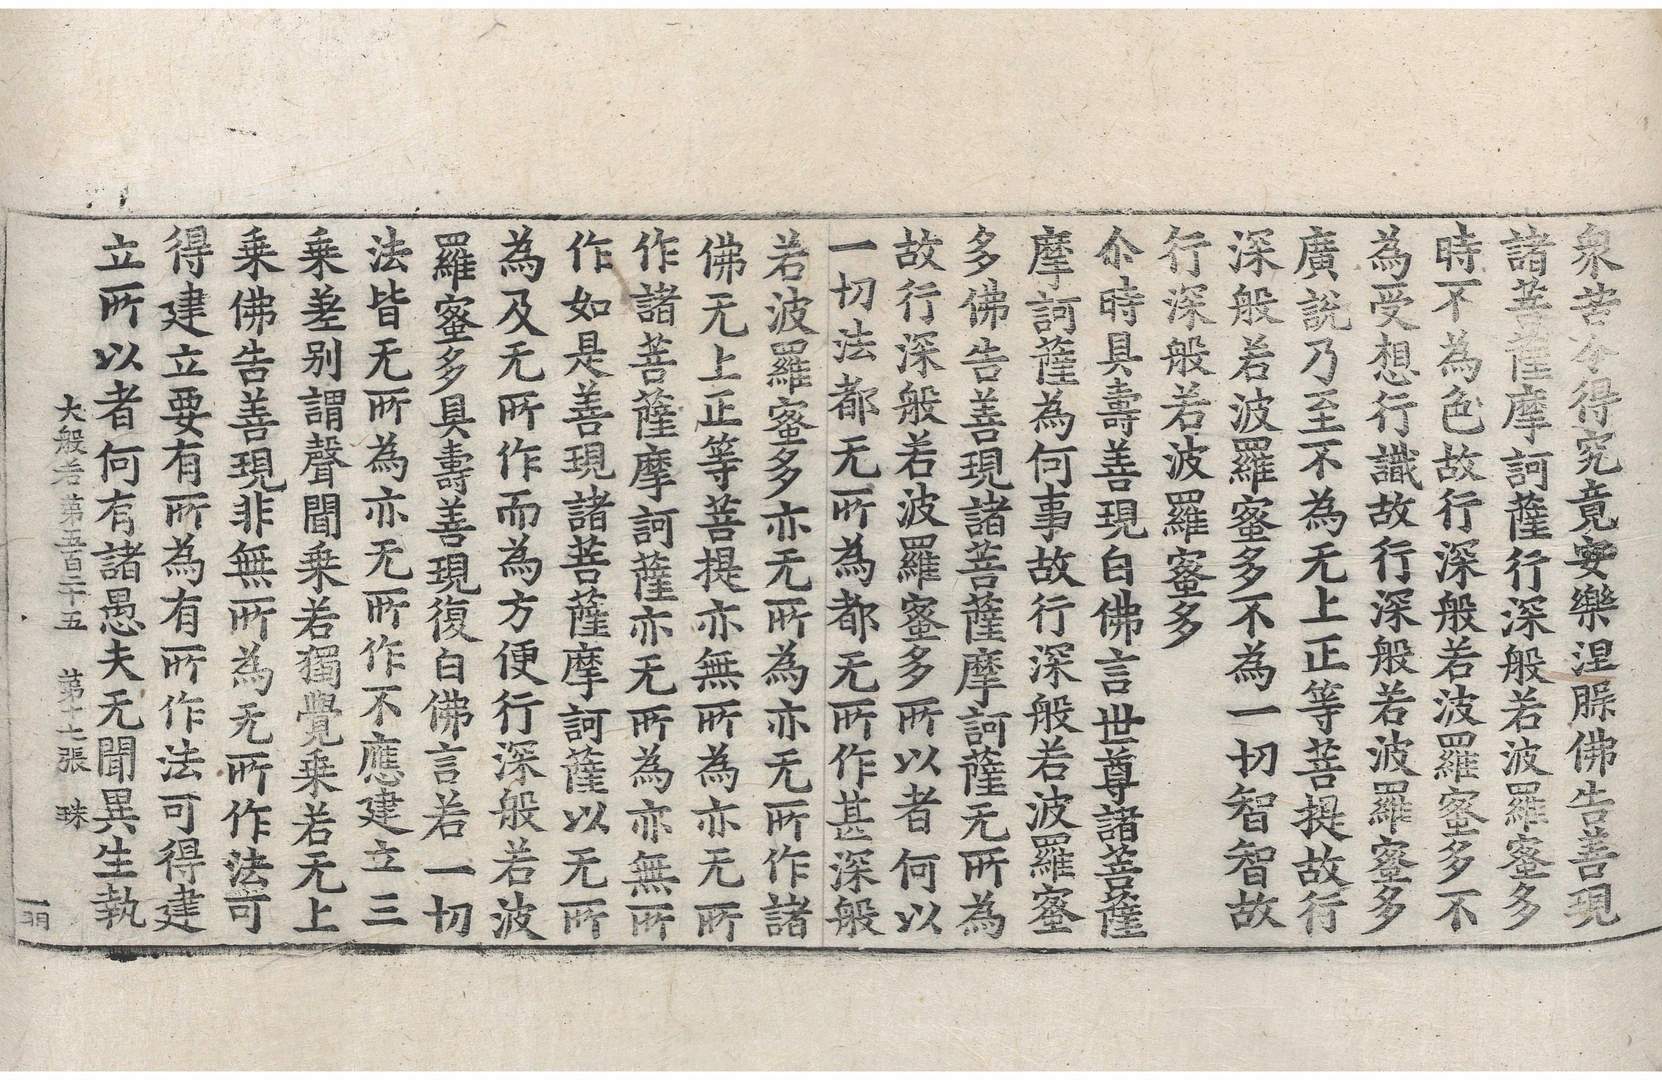 衆苦令得究竟安樂涅槃佛告善現
諸菩薩摩訶薩行深般若波羅蜜多
時不為色故行深般若波羅蜜多不
為受想行識故行深般若波羅蜜多
廣說乃至不為无上正等菩提故行
深般若波羅蜜多不為一切智智故
行深般若波羅蜜多
尒時具壽善現白佛言世尊諸菩薩
摩訶薩為何事故行深般若波羅蜜
多佛告善現諸菩薩摩訶薩无所為
故行深般若波羅蜜多所以者何以
一切法都无所為都无所作甚深般
若波羅蜜多亦无所為亦无所作諸
佛无上正等菩提亦無所為亦无所
作諸菩薩摩訶薩亦无所為亦無所
作如是善現諸菩薩摩訶薩以无所
為及无所作而為方便行深般若波
羅蜜多具壽善現復白佛言若一切
法皆无所為亦无所作不應建立三
乗差别謂聲聞乗若獨覺乗若无上
乗佛告善現非無所為无所作法可
得建立要有所為有所作法可得建
立所以者何有諸愚夫无聞異生執
大般若第五百二十五 第十七張 珠